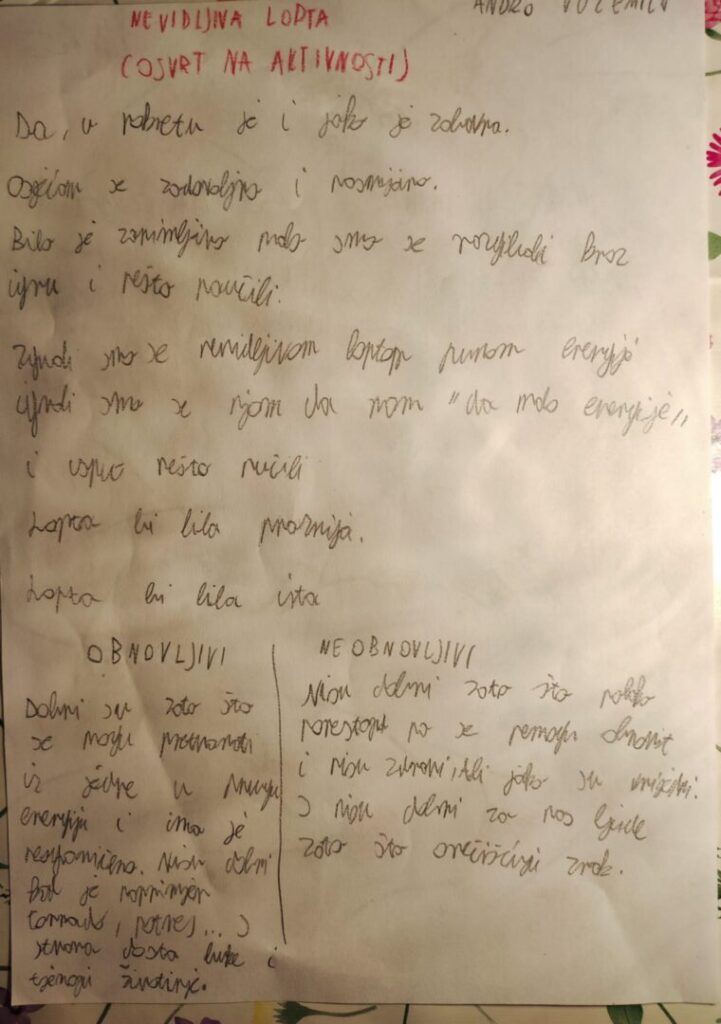 ANDRO VUČEMILO
NEVIDLJIVA LOPTA
(OSVRT NA AKTIVNOSTI)
Da, u pokretu je i jako je zabavna.
Osjećam se zadovoljno i nasmijano.
Bilo je zanimljivo malo smo se razgibali kroz
igru i nešto naučili.
Igrali smo se nevidljivom loptom punom energije
igrali smo se njom da nam "da malo energije"
i usput nešto nučili
Lopta bi bila praznija.
Lopta bi bila ista
OBNOVLJIVI
Dobri su zato što
se mogu pretvarati
iz jedne u drugu
energiju i ima je
neograničeno. Nisu dobri
kad je naprimjer
tornado, potres... J
stvara dosta buke i
tjeraju životinje.
NEOBNOVLJIVI
Nisu dobri zato što polako
nestaju pa se nemogu obnovit
i nisu zdravi, Ali jako su vrijedni.
J nisu dobri za nas ljude
zato što onečišćuju zrak.